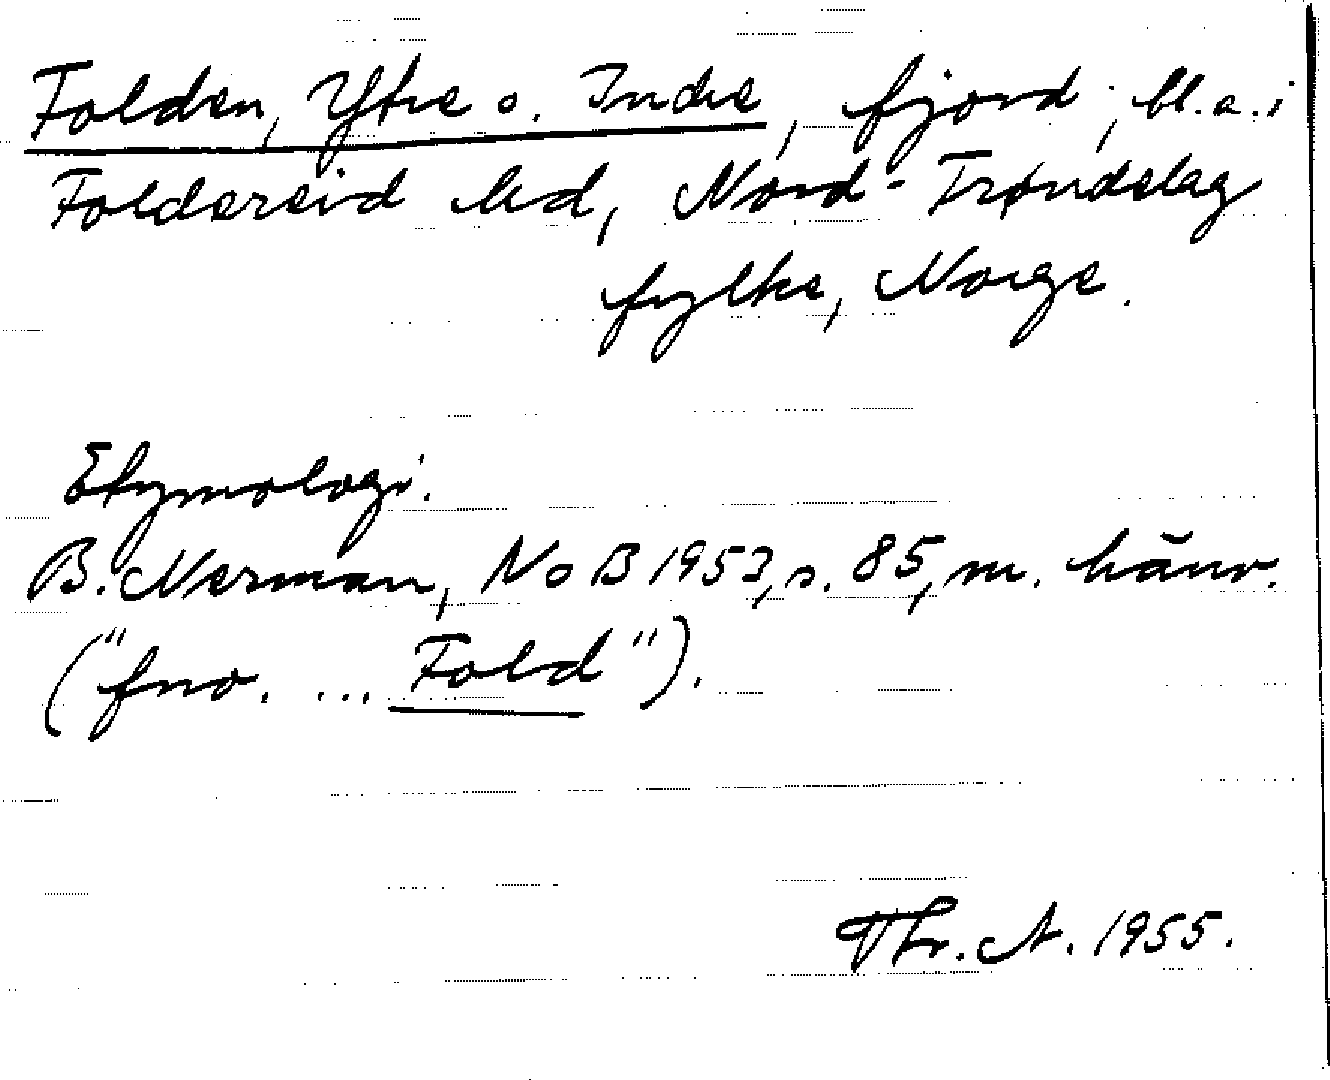 Folden, Ytre o. Indre, fjord, bl.a.i
Foldereid hd, Nord-Trøndelag
fylke, Norge.
Etymologi.
B. Nerman, NoB 1953, s. 85, m. hänv.
("fno. ... Fold").
Thr. A. 1955.